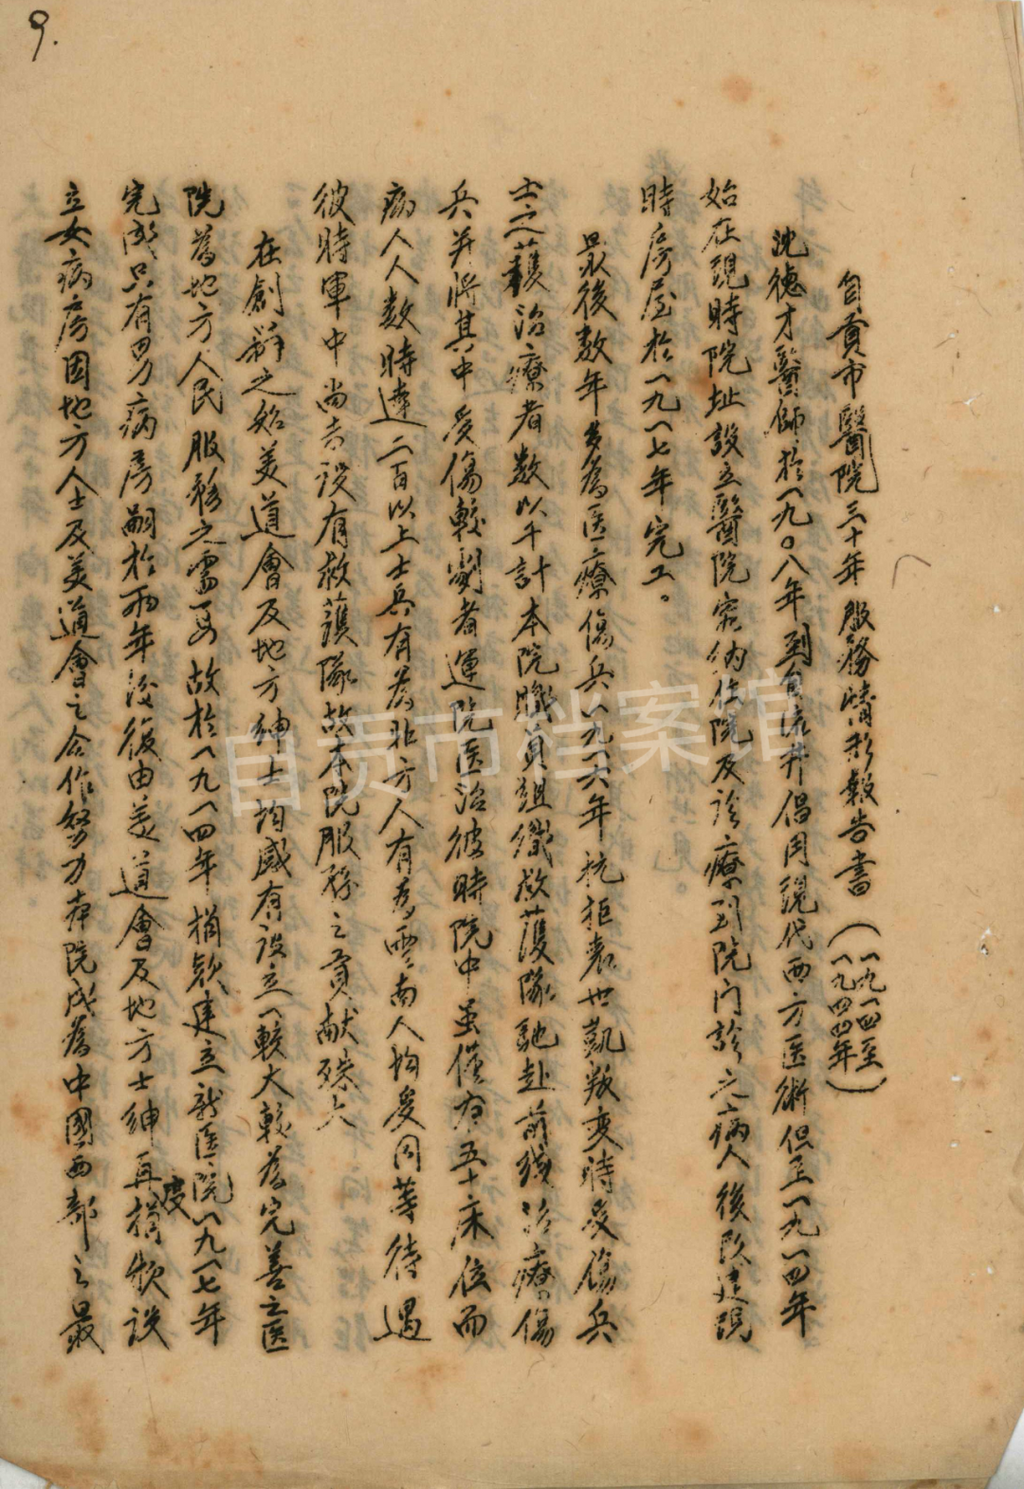 9.
自貢市醫院三十年服務情形報告書（一九一四至一九四四年）
沈德才醫師於一九〇八年到自流井倡用現代西方医術但至一九一四年
始在現時院址設立醫院容納住院及診療到院門診之病人後改建現
時房屋於一九一七年完工。
最後数年多為医療傷兵一九一六年抗拒袁世凱叛变時受傷兵
士之護治療者数以千計本院職員組織救護隊馳赴前线治療傷
兵并將其中受傷較劇者運院医治彼時院中虽僅有五十床位而
病人人数時達二百以上士兵有為北方人有為雲南人均受同等待遇
彼時軍中尚未設有救護隊故本院服務之貢献殊大
在創辦之始美道會及地方紳士均感有設立一較大較為完善之医
院為地方人民服務之需要故於一九一四年捐款建立新医院一九一七年
完成只有男病房嗣於兩年後復由美道會及地方士紳再度捐款設
立女病房因地方人士及美道會之合作努力本院成為中國西部之最
自贡市档案馆